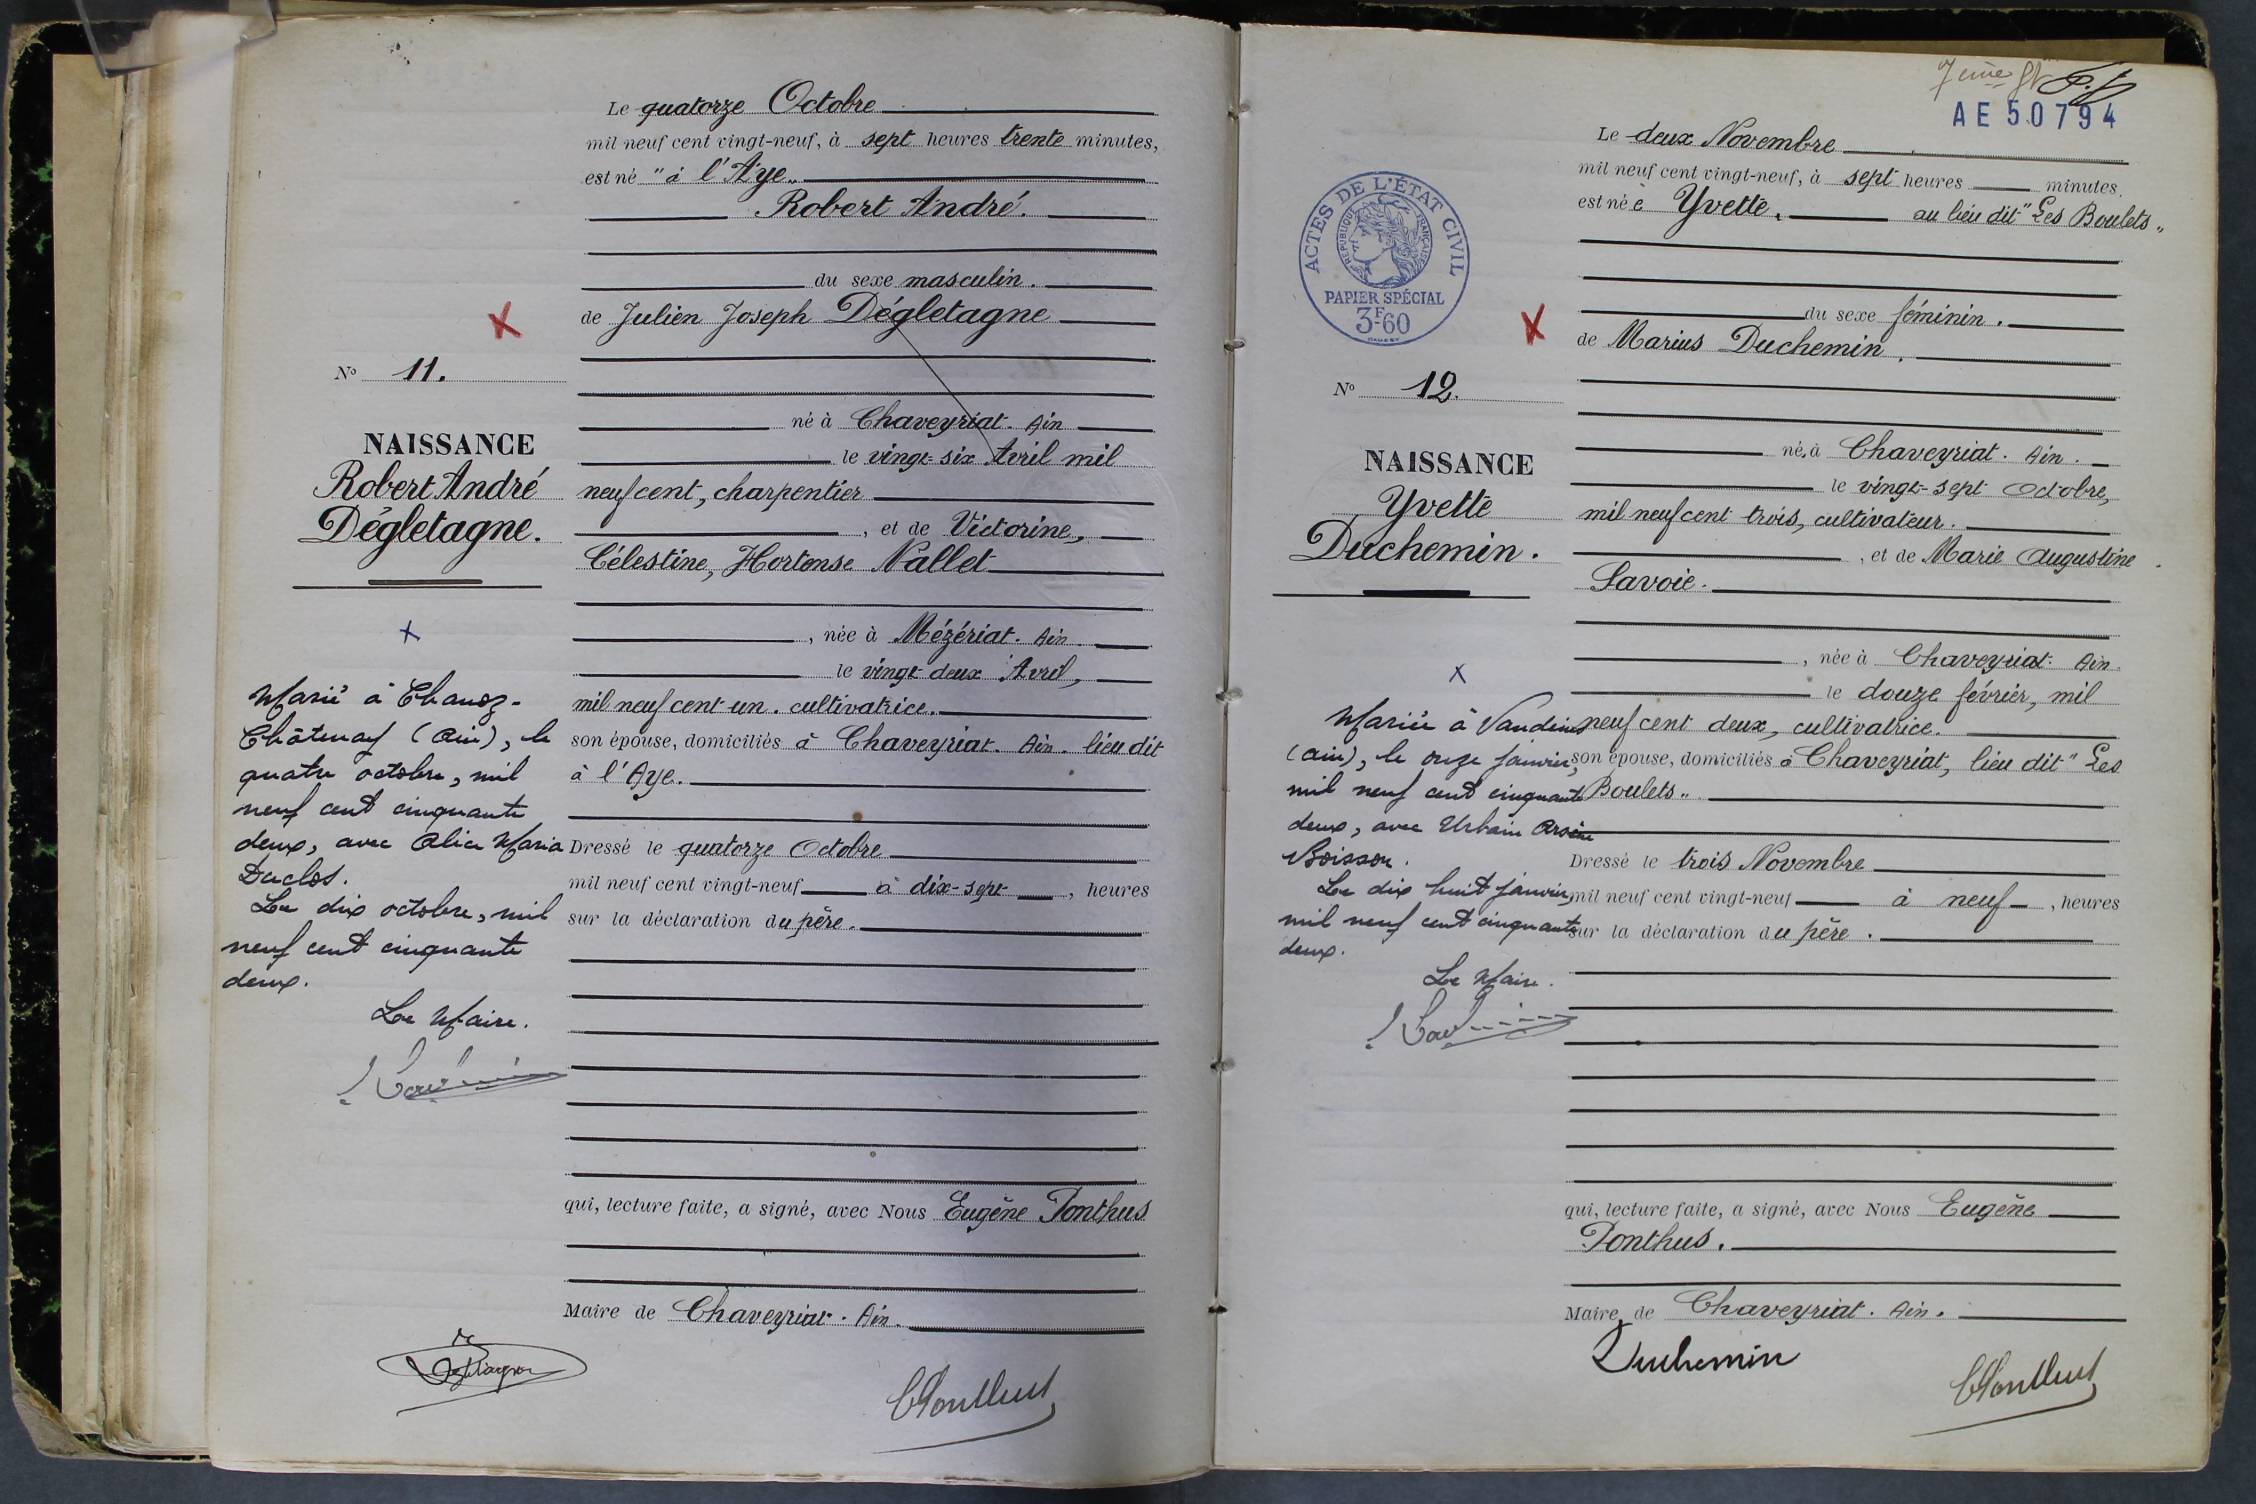 Le quatorze Octobre
mil neuf cent vingt-neuf, à sept heures trente minutes,
est né "à l'Aye„
Robert André.
du sexe masculin.
de Julien Joseph Dégletagne
N° 11.
né à Chaveyriat. Ain
NAISSANCE
le vingt-six Avril mil
Robert André
neuf cent, charpentier
Dégletagne.
, et de Victorine,
Célestine, Hortense Nallet
, née à Mézériat. Ain.
le vingt deux Avril,
mil neuf cent un. cultivatrice.
son épouse, domiciliés à Chaveyriat. Ain. lieu dit
à l'Aye.
Marié à Chanoz-
Châtenay (Ain), le
quatre octobre, mil
neuf cent cinquante
deux, avec Alice Maria
Duclos.
Le dix octobre, mil
neuf cent cinquante
deux.
Le Maire.
Dressé le quatorze Octobre
mil neuf cent vingt-neuf à dix-sept, heures
sur la déclaration du père.
qui, lecture faite, a signé, avec Nous Eugène Ponthus
Maire de Chaveyriat. Ain.
7ème
AE 50794
Le deux Novembre
mil neuf cent vingt-neuf, à sept heures minutes.
est née Yvette, au lieu dit "Les Boulets„
ACTES DE L'ÉTAT CIVIL
RÉPUBLIQUE FRANÇAISE
PAPIER SPÉCIAL
3F60
du sexe féminin.
de Marius Duchemin,
N° 12.
né à Chaveyriat. Ain.
NAISSANCE
le vingt-sept Octobre,
Yvette
mil neuf cent trois, cultivateur.
Duchemin.
, et de Marie Augustine
Savoie.
, née à Chaveyriat. Ain.
le douze février, mil
neuf cent deux, cultivatrice.
son épouse, domiciliés à Chaveyriat, lieu dit "Les
Boulets„
Mariée à Vandeins
(Ain), le onze janvier,
mil neuf cent cinquante
deux, avec Urbain Arsène
Boisson.
Le dix huit janvier,
mil neuf cent cinquante
deux.
Le Maire.
Dressé le trois Novembre
mil neuf cent vingt-neuf à neuf, heures
sur la déclaration du père.
qui, lecture faite, a signé, avec Nous Eugène
Ponthus.
Maire de Chaveyriat. Ain.
Duchemin